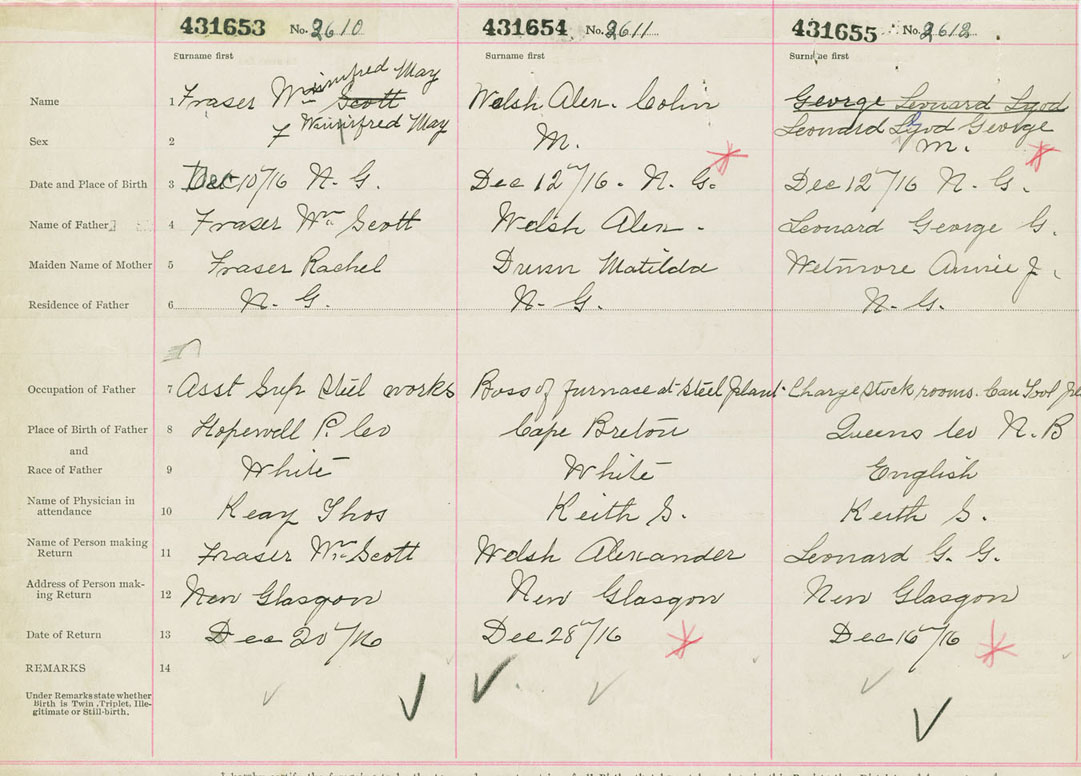 431653 No. 2610 431654 No. 2611 431655 No. 2612
Surname first Surname first Surname first
Winnifred May
Name 1 Fraser Wm Scott Welsh Alex. Colin George Leonard Lyod
F Winnifred May Leonard Lyod George
Sex 2 M. M.
Date and Place of Birth 3 Dec 10th/16 N. G. Dec 12th/16. N. G. Dec 12th/16 N. G.
Name of Father 4 Fraser Wm Scott Welsh Alex. Leonard George G.
Maiden Name of Mother 5 Fraser Rachel Matilda Wetmore Annie J.
Residence of Father 6 N. G. N. G. N. G.
Occupation of Father 7 Asst Sup Steel works Boss of furnace at Steel Plant. Charge Stock rooms. Can Tool
Place of Birth of Father 8 Hopewell P. Co Cape Breton Queens Co N. B
and
Race of Father 9 White White English
Name of Physician in
attendance 10 Keay Thos Keith S. Keith S.
Name of Person making
Return 11 Fraser Wm Scott Welsh Alexander Leonard G. G.
Address of Person mak-
ing Return 12 New Glasgow New Glasgow New Glasgow
Date of Return 13 Dec 20th/16 Dec 28th/16 Dec 16th/16
REMARKS 14
Under Remarks state whether
Birth is Twin, Triplet, Ille-
gitimate or Still-birth.